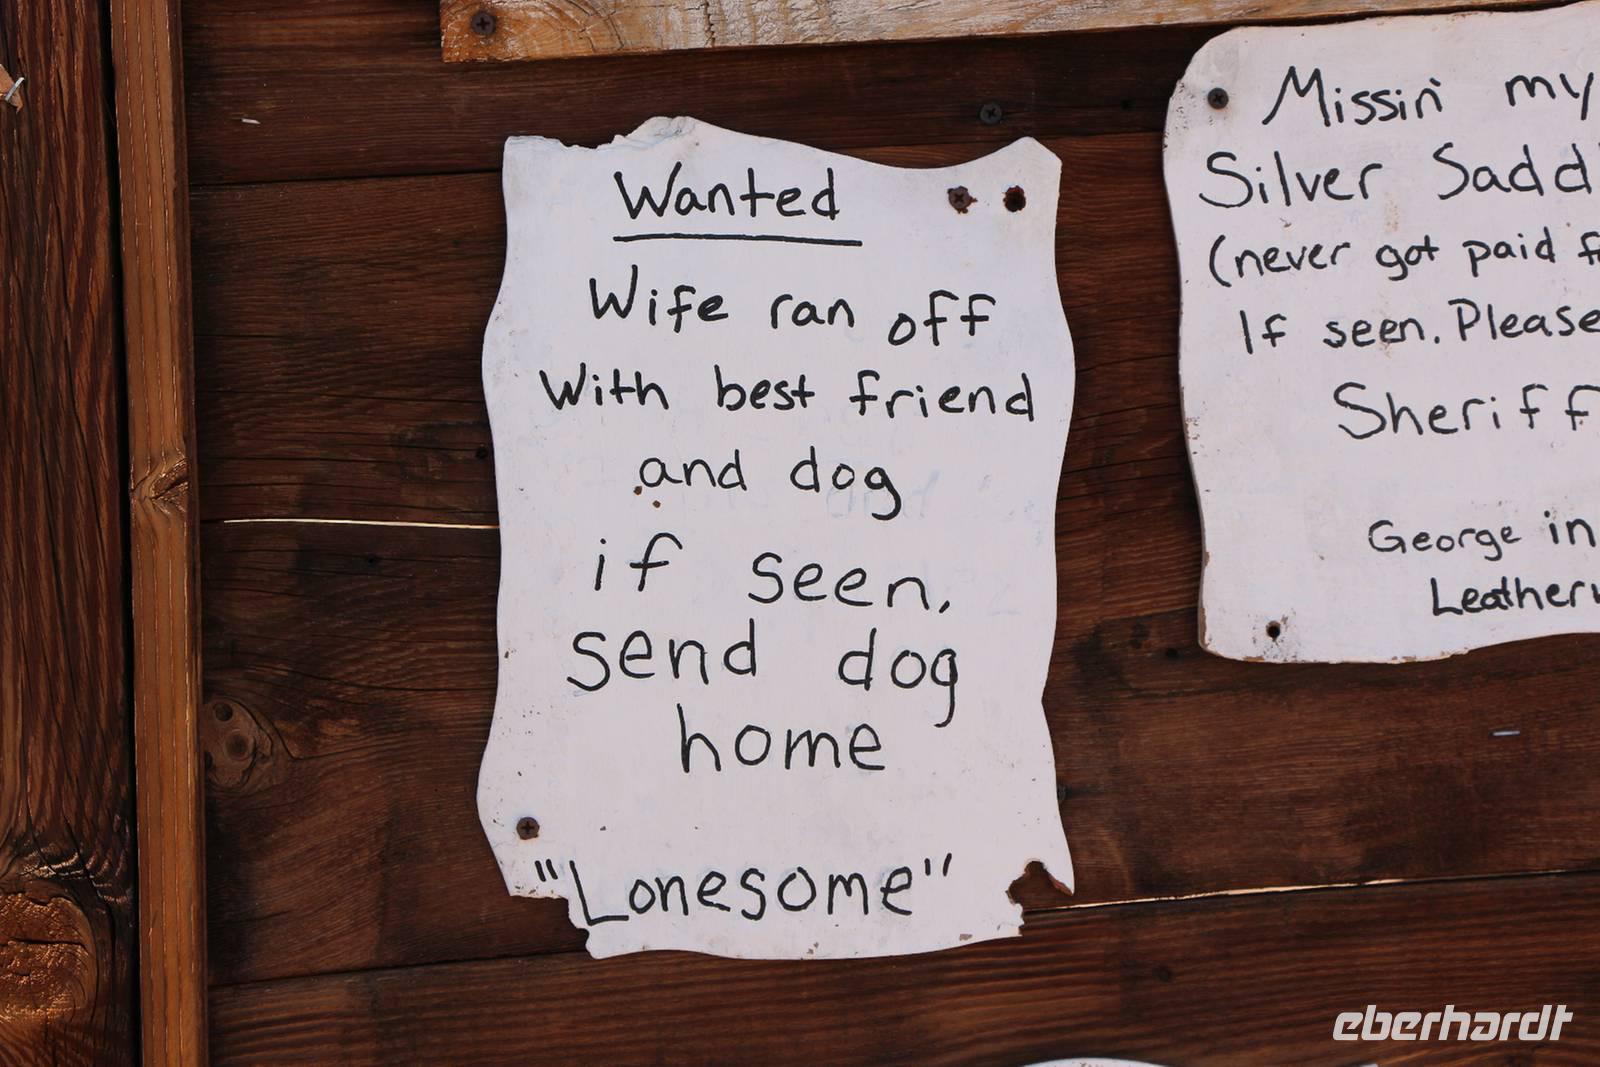 Wanted
Wife ran off
With best friend
and dog
if seen,
send dog
home
"Lonesome"
Missin' my
Silver
(never got paid
If seen. Please
Sheriff
George in
eberhardt